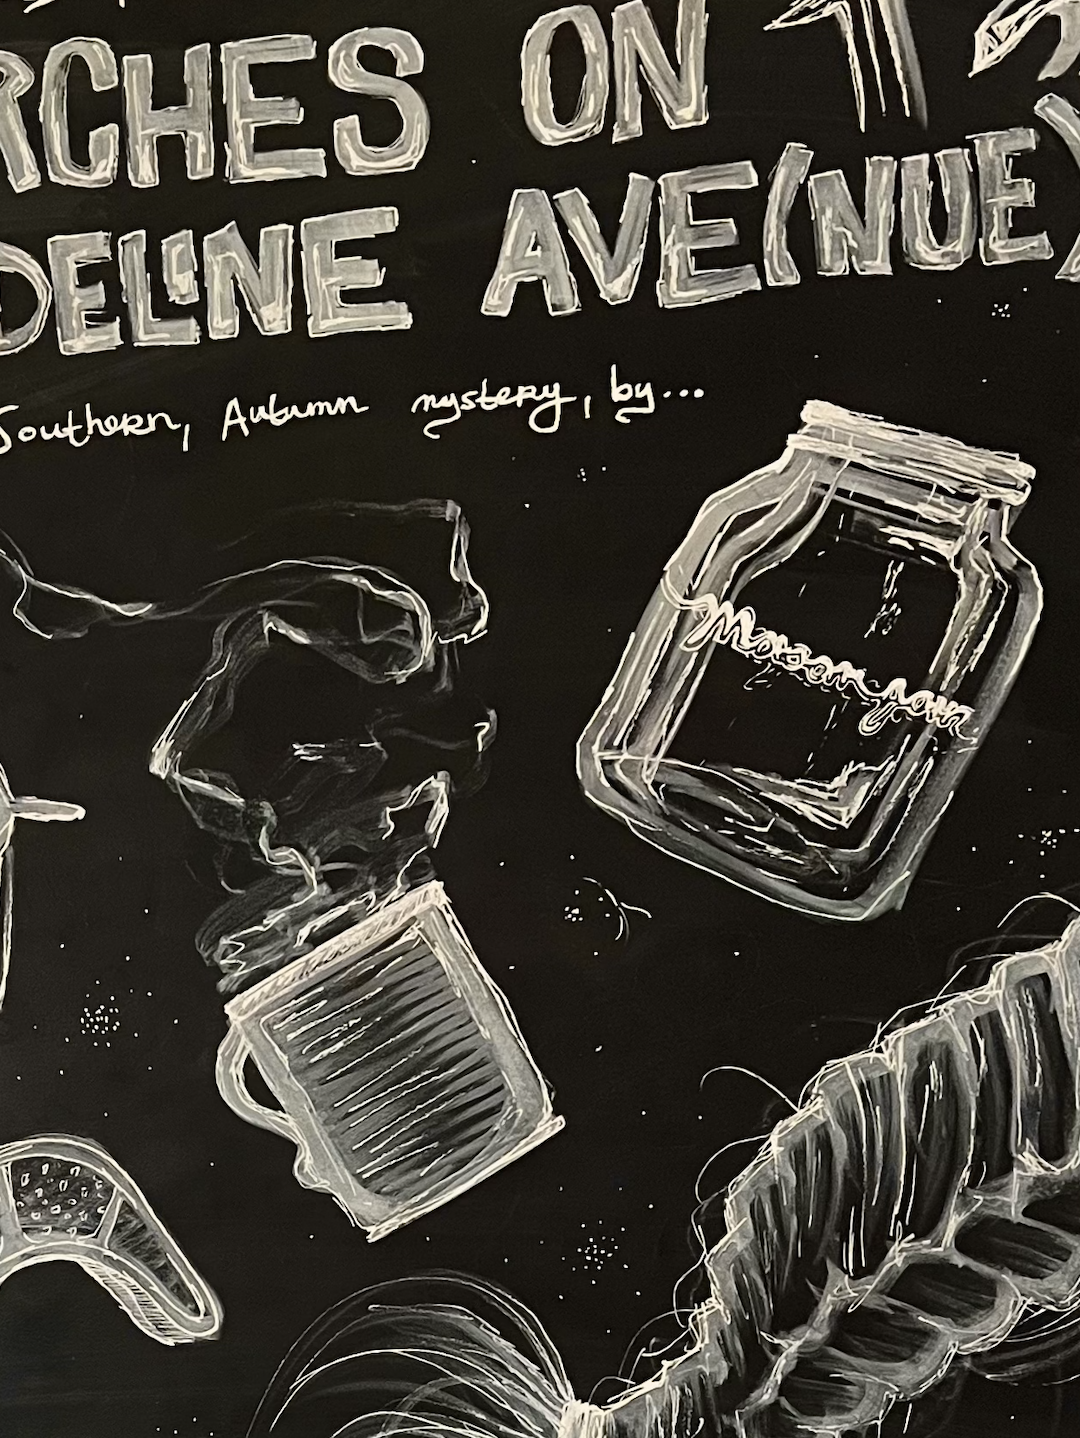 RCHES ON
DELINE AVE(NUE)
Southern, Autumn mystery, by...
Mason jar